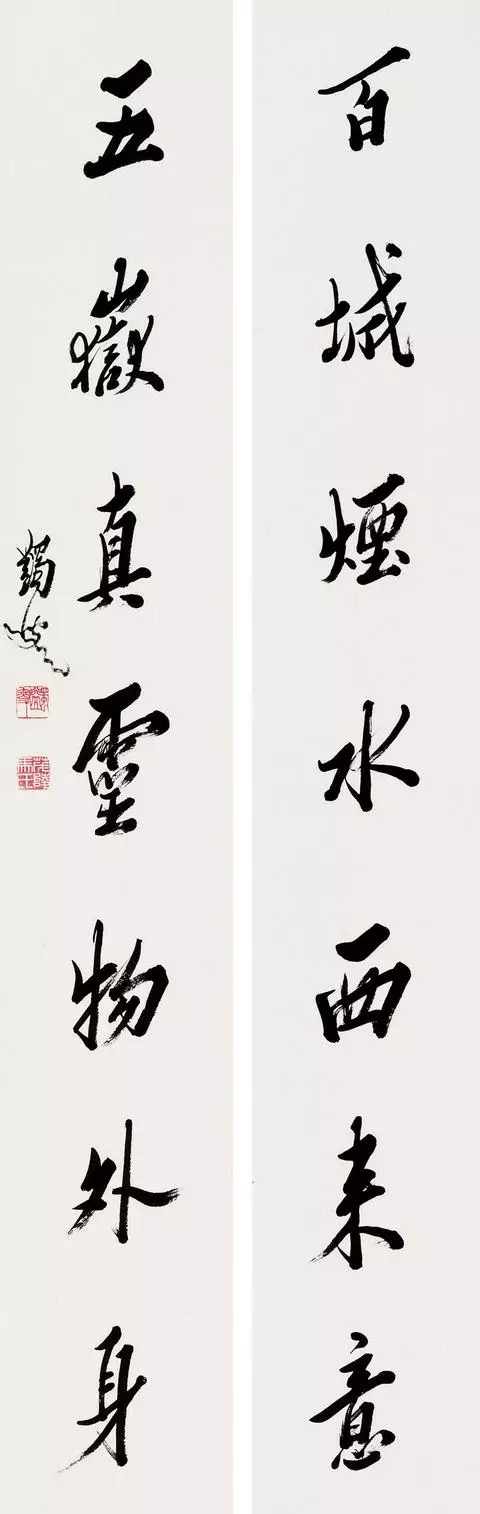 百城煙水西来意
五嶽真靈物外身
蠲叟